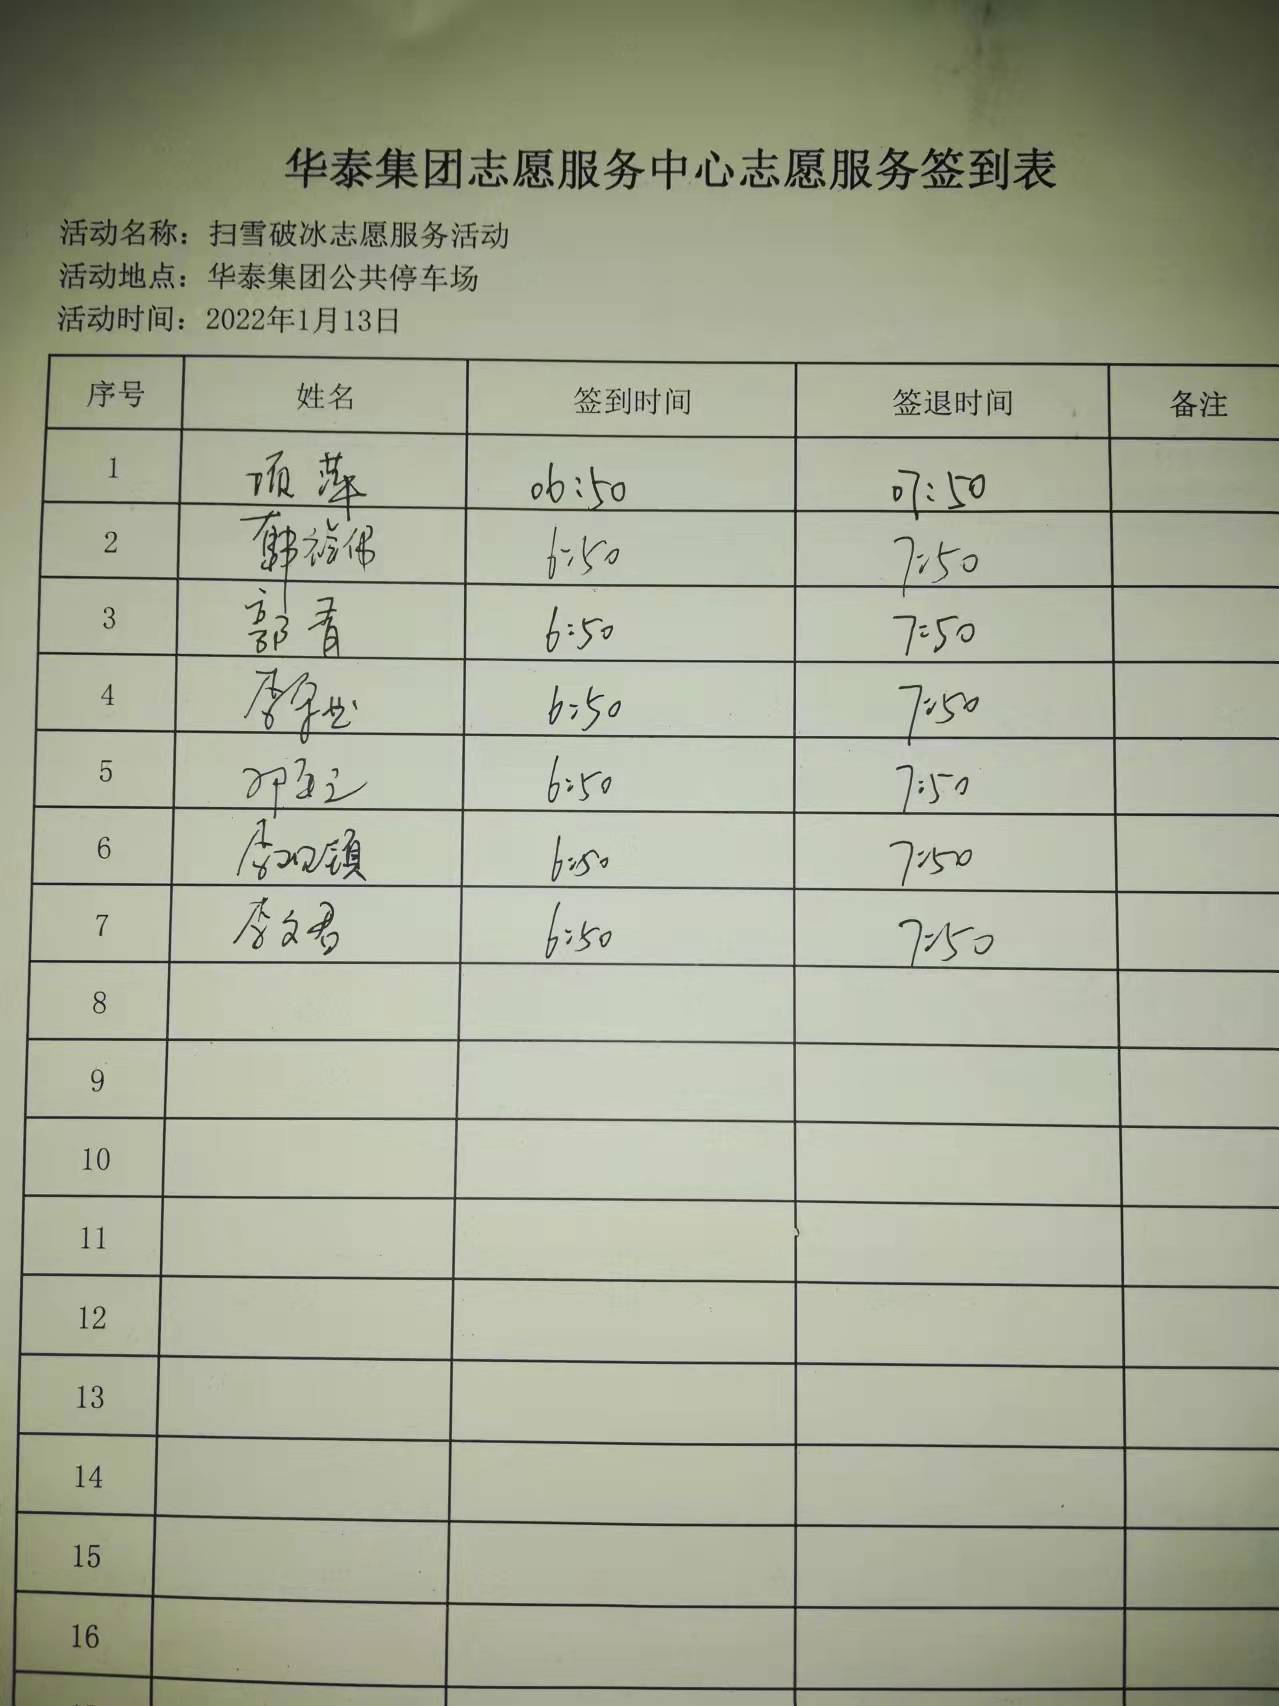 华泰集团志愿服务中心志愿服务签到表
活动名称：扫雪破冰志愿服务活动
活动地点：华泰集团公共停车场
活动时间：2022年1月13日
序号 姓名 签到时间 签退时间 备注
1 项萍 06:50 07:50
2 韩 6:50 7:50
3 郭青 6:50 7:50
4 李 6:50 7:50
5 邓 6:50 7:50
6 李 6:50 7:50
7 李文君 6:50 7:50
8
9
10
11
12
13
14
15
16